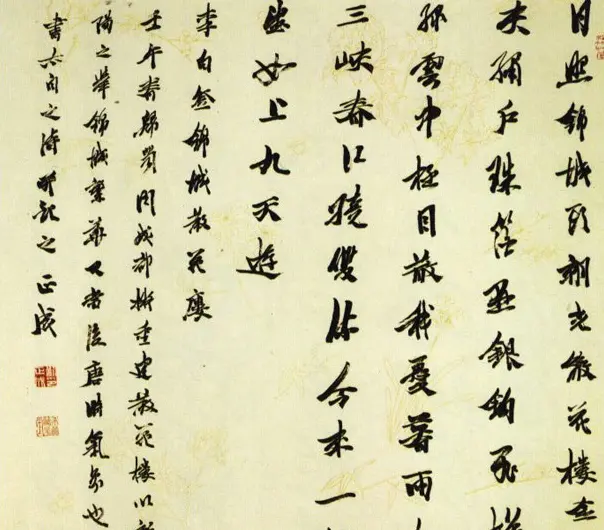 日照錦城頭朝光散花樓
夾繡戶珠箔懸銀鉤飛梯
綠雲中極目散我憂暮雨
三峽春江繞雙流今來一
望如上九天遊
李白登錦城散花樓
壬午春歸蜀聞成都擬重建散花樓以
之舉錦城繁華又唐時氣象也
書太白之詩并記之正成